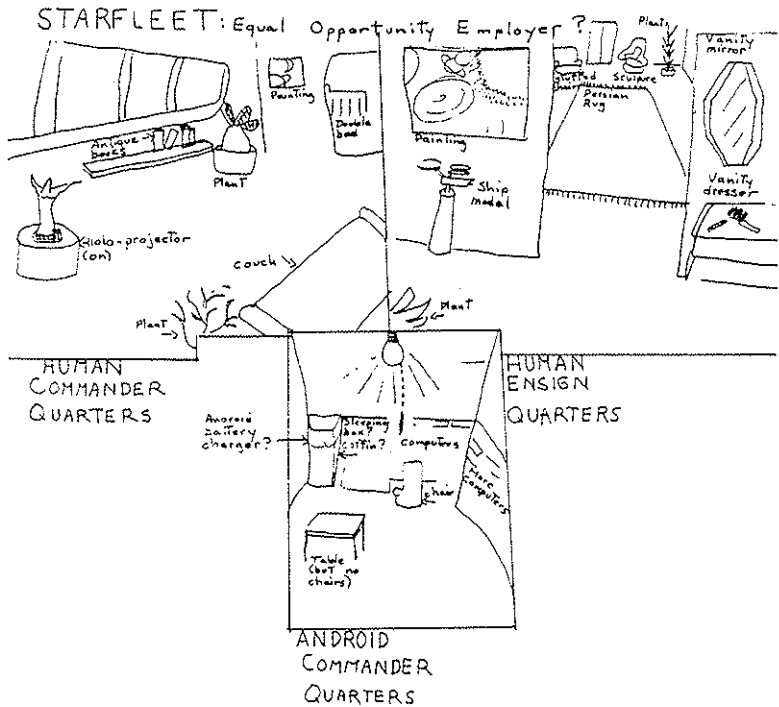 STARFLEET: Equal Opportunity Employer?
Painting
Double
bed
Antique
books
Plant
Holo-projector
(on)
couch
Plant
HUMAN
COMMANDER
QUARTERS
Painting
Ship
model
Stuffed
chair
Sculpure
Plant
Persian
Rug
Vanity
mirror
Vanity
dresser
Plant
HUMAN
ENSIGN
QUARTERS
Android
battery
charger?
Sleeping
box?
coffin?
Computers
chair
More
computers
Table
(but no
chairs)
ANDROID
COMMANDER
QUARTERS